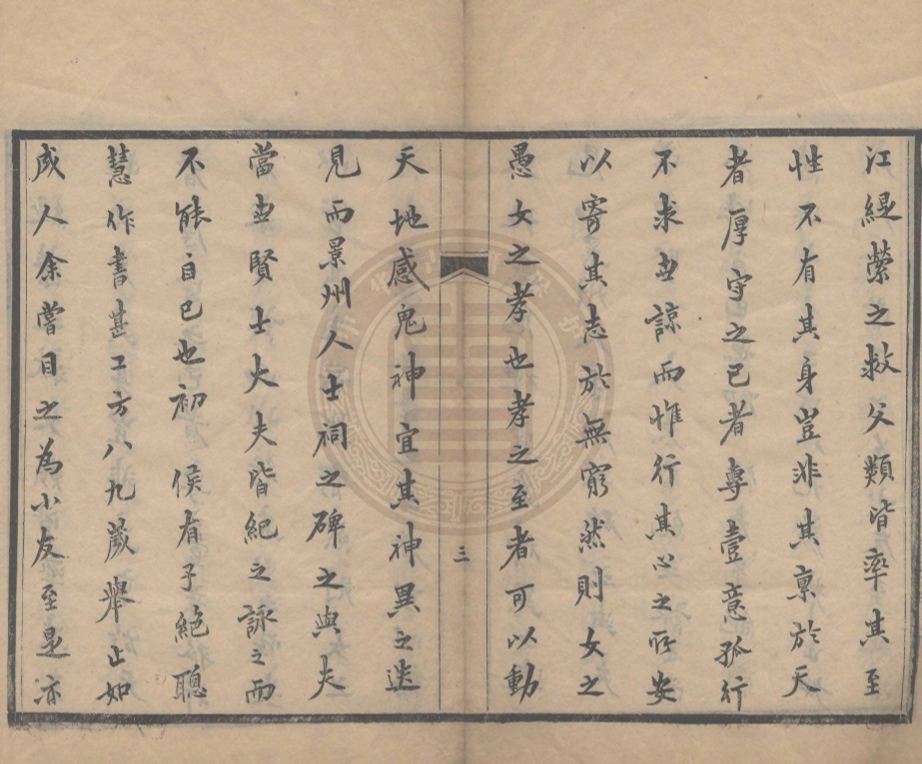 江緹縈之救父類皆率其至
性不有其身豈非其稟於天
者厚守之已者專壹意孤行
不求世諒而惟行其心之所安
以寄其志於無窮然則女之
愚女之孝也孝之至者可以動
三
天地感鬼神宜其神異之迭
見而景州人士祠之碑之與夫
當世賢士大夫皆紀之詠之而
不能自已也初侯有子絕聰
慧作書甚工方八九歲舉止如
成人余嘗目之為小友至是亦